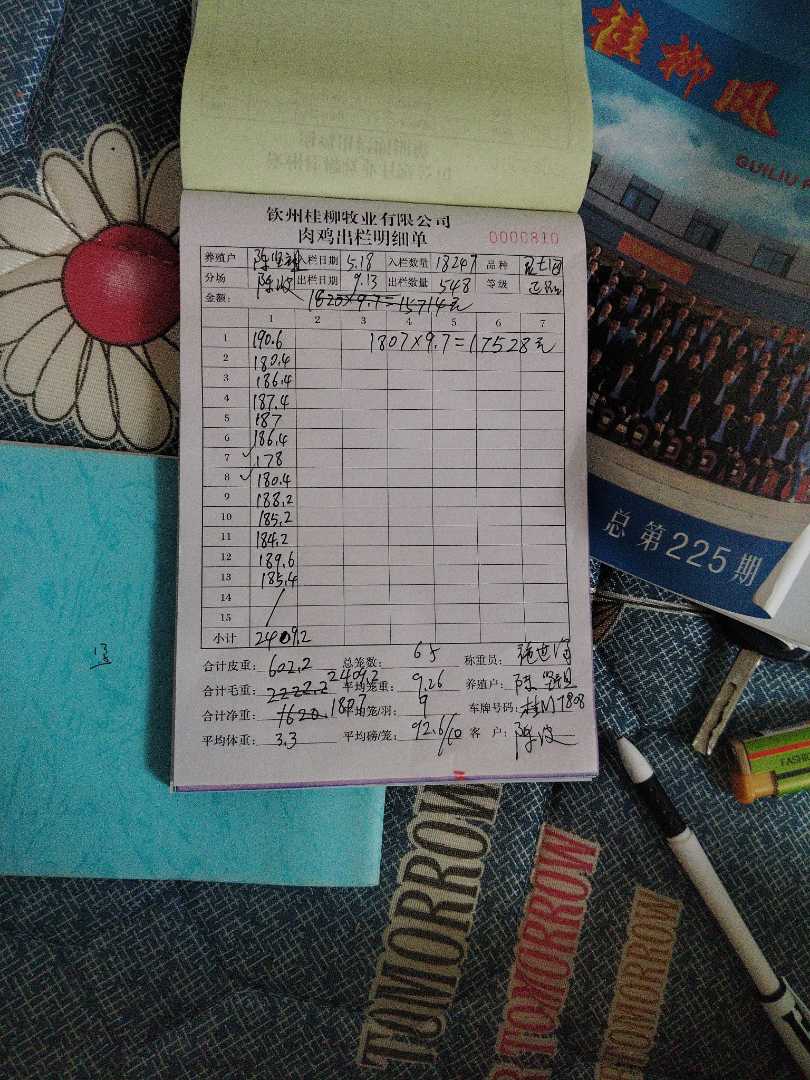 桂柳风
GUILIU
钦州桂柳牧业有限公司
肉鸡出栏明细单
0000810
养殖户 入栏日期 5.18 入栏数量 18247 品种
分场 出栏日期 9.13 出栏数量 548 等级
金额: 1620×9.7=15714元
1 2 3 4 5 6 7
1 190.6 1807×9.7=17528元
2 180.4
3 186.4
4 187.4
5 187
6 186.4
7 178
8 180.4
9 188.2
10 185.2
11 184.2
12 189.6
13 185.4
14
15
小计 2409.2
合计皮重: 602.2 总笼数: 65 称重员:
合计毛重: 2222.2 2409.2 平均笼重: 9.26 养殖户:
合计净重: 1620 1807 平均笼/羽: 9 车牌号码: 桂M7808
平均体重: 3.3 平均磅/笼: 92.6/10 客户: 陈波
总第225期
FASHI
TOMORROW
TOMORROW
TOMORROW